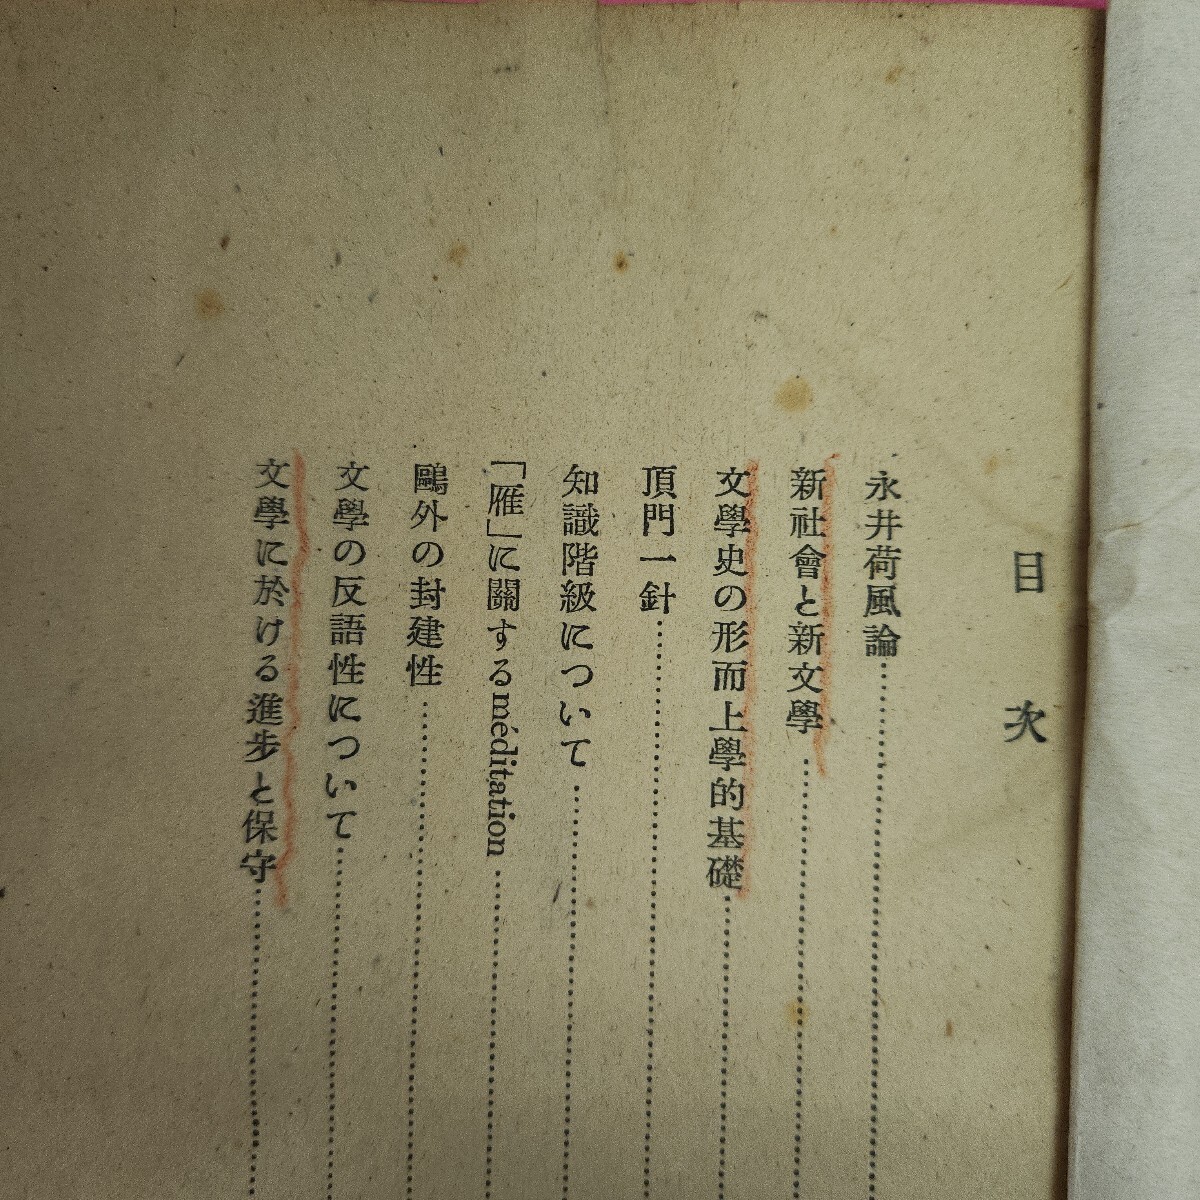 目次
永井荷風論
新社會と新文學
文學史の形而上學的基礎
頂門一針
知識階級について
「雁」に關するméditation
鷗外の封建性
文學の反語性について
文學に於ける進步と保守